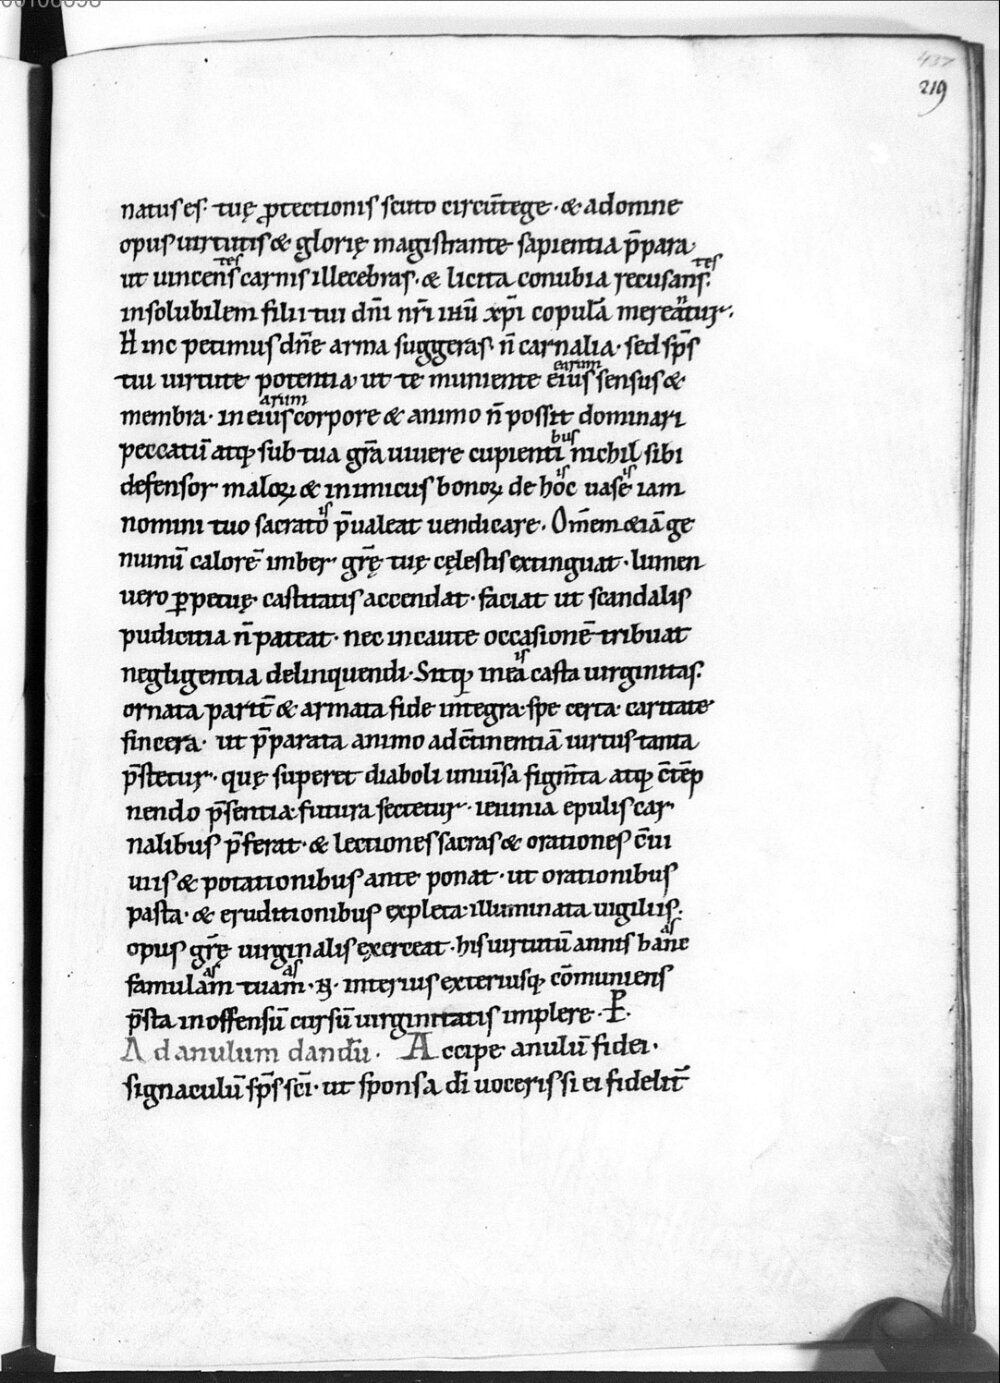 437
219
natus es· tuę ꝓtectionis scuto circūtege· & ad omne
opus uirtutis & glorię magistrante sapientia p̄para
tes tes
ut uincens carnis illecebras· & licita conubia recusans·
insolubilem filii tui dn̄i nr̄i ihū xp̄i copulā mereātur·
Hinc petimus dn̄e arma suggeras· n̄ carnalia· sed sp̄s
earum
tui uirtute potentia· ut te muniente eius sensus &
arum
membra· in eius corpore & animo n̄ possit dominari
bus
peccatū atq; sub tua grā uiuere cupienti nichil sibi
is is
defensor maloꝝ & inimicus bonoꝝ de hoc uase iam
is
nomini tuo sacrato p̄ualeat uendicare· Om̄em etiā ge
nuinū calorē imber grę̄ tuę cęlestis extinguat· lumen
uero ꝑpetuę castitatis accendat· faciat ut scandalis
pudicitia n̄ pateat· nec incaute occasionē tribuat
is
negligentia delinquendi· Sitq; in ea casta uirginitas·
ornata parit̄ & armata fide integra· spe certa· caritate
sincera· ut p̄parata animo ad c̄tinentiā uirtus tanta
p̄stetur· quę superet diaboli uniūsa figm̄ta atq; c̄tēp
nendo p̄sentia· futura sectetur· ieiunia epulis car
nalibus p̄ferat· & lectiones sacras & orationes c̄ui
uiis & potationibus ante ponat· ut orationibus
pasta· & eruditionibus expleta· illuminata uigiliis·
as
opus grę̄ uirginalis exerceat· his uirtutū armis hanc
as as
famulam tuam· N· interius exteriusq; cōmuniens
p̄sta inoffensū cursū uirginitatis implere· P·
Ad anulum dandū· Accipe anulū fidei·
signaculū sp̄s sc̄i· ut sponsa dī uoceris si ei fidelit̄